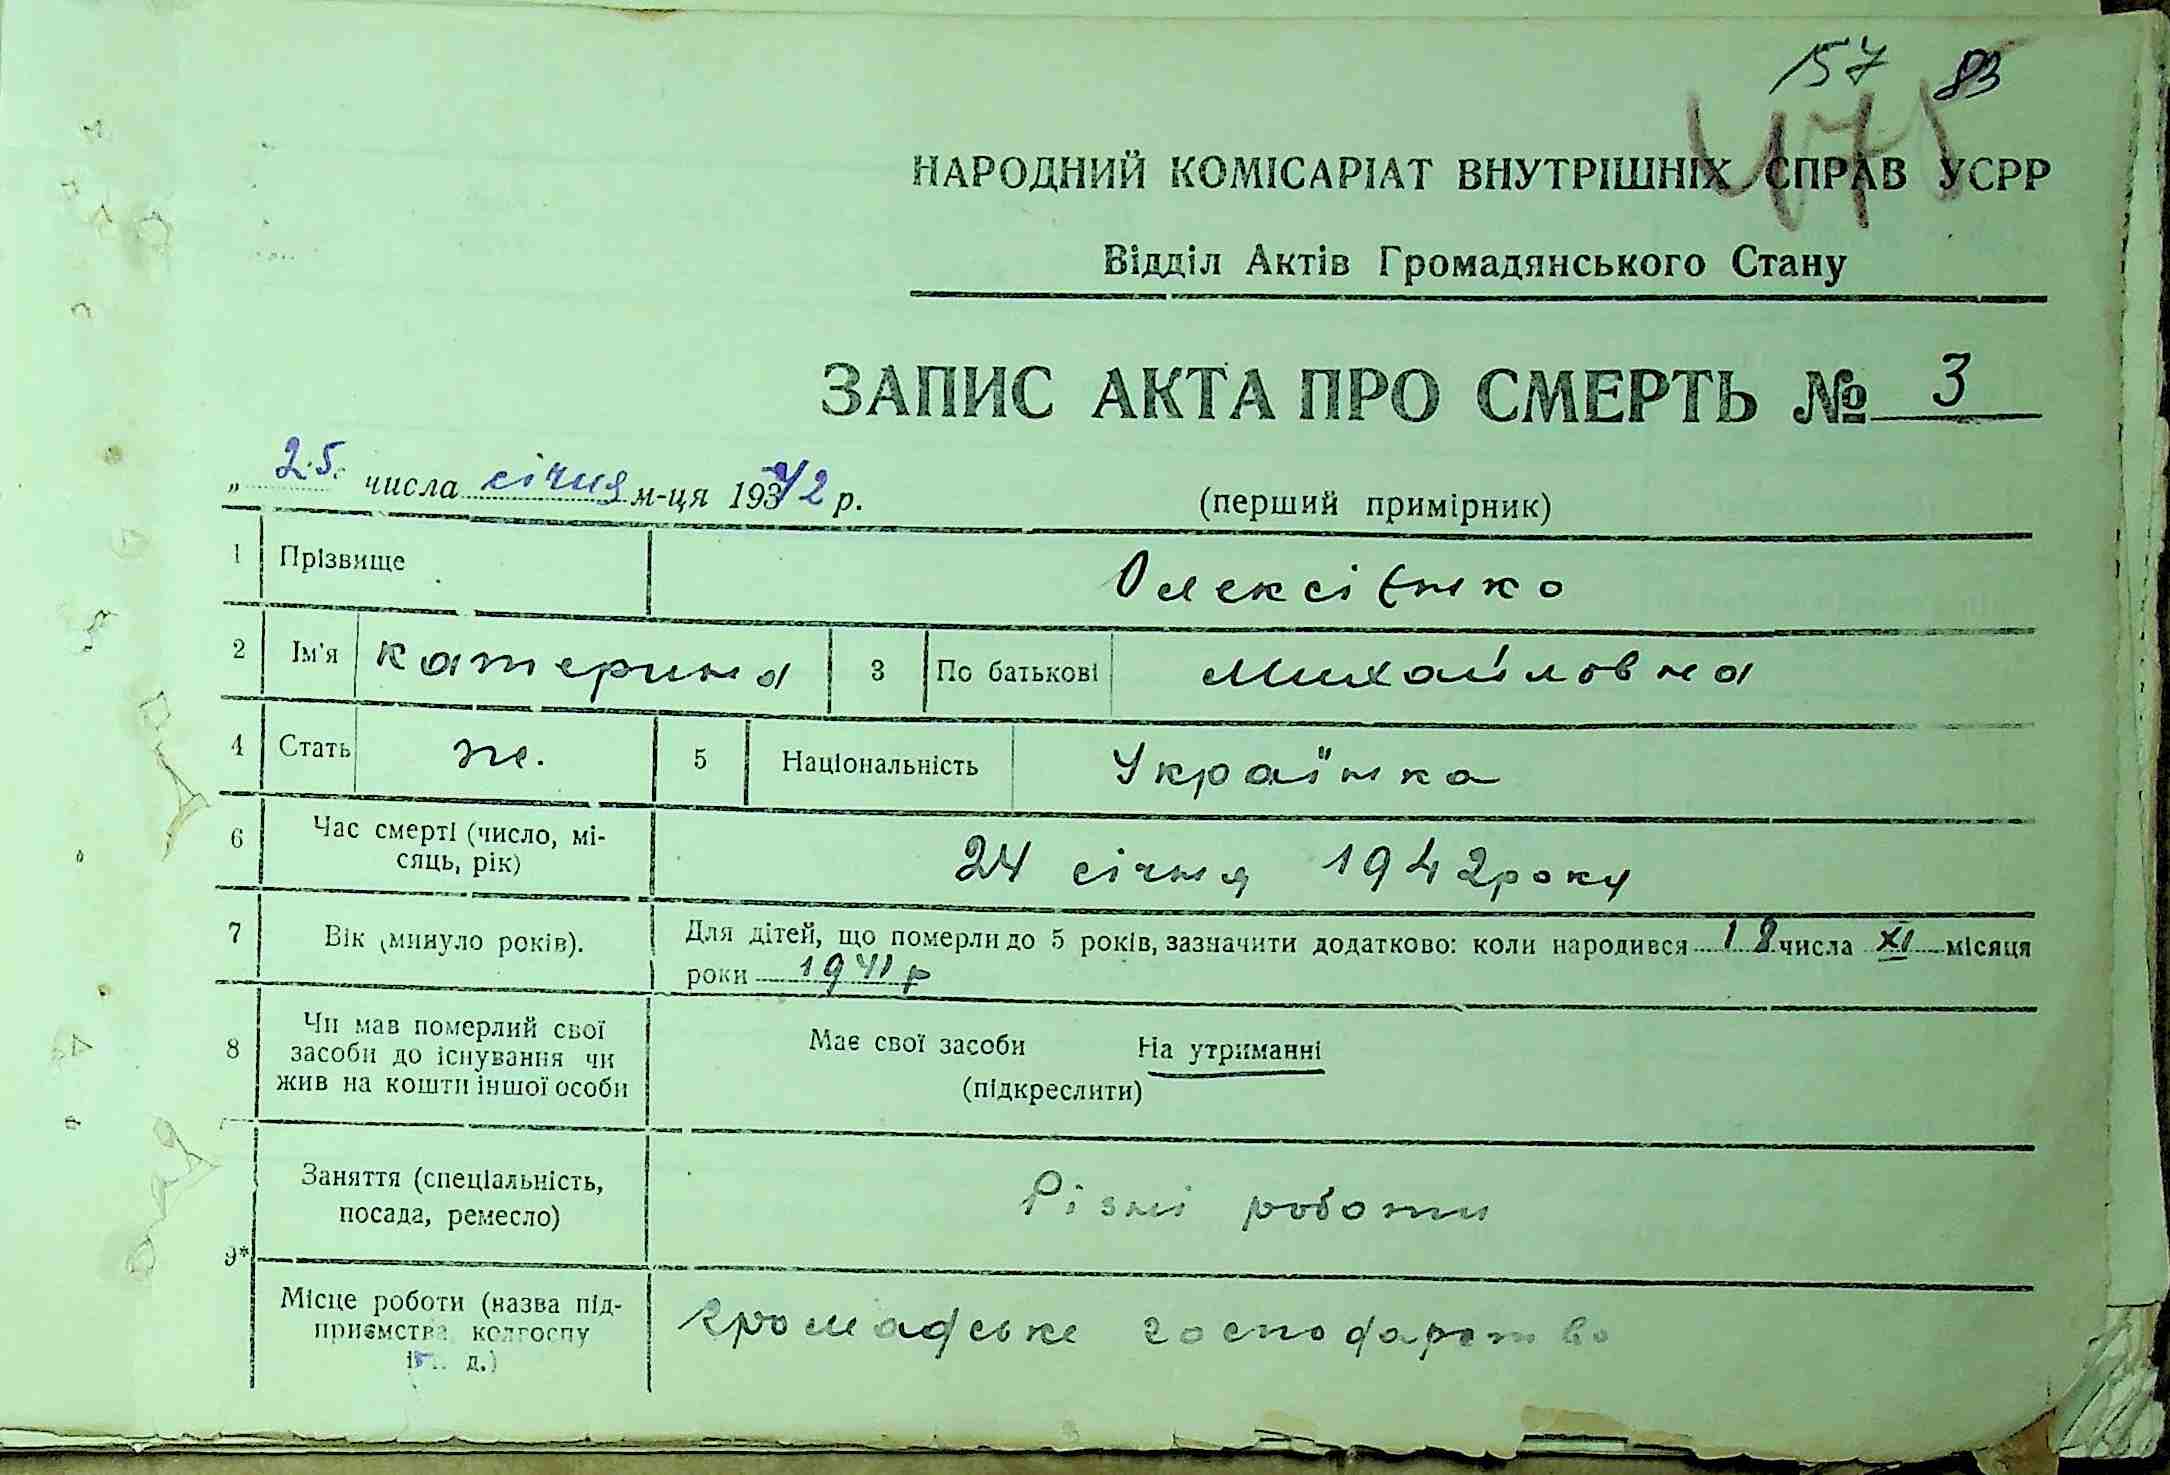 157 83
НАРОДНИЙ КОМІСАРІАТ ВНУТРІШНІХ СПРАВ УСРР
Відділ Актів Громадянського Стану
ЗАПИС АКТА ПРО СМЕРТЬ № 3
„ 25. числа січня м-ця 1942 р.
(перший примірник)
1 Прізвище Олексієнко
2 Ім'я Катерина 3 По батькові Михайловна
4 Стать ж. 5 Національність Українка
6 Час смерті (число, мі-
сяць, рік) 24 січня 1942 року
7 Вік (минуло років). Для дітей, що померли до 5 років, зазначити додатково: коли народився 18 числа XI місяця
роки 1941 р
8 Чи мав померлий свої
засоби до існування чи
жив на кошти іншої особи
Має свої засоби На утриманні
(підкреслити)
9* Заняття (спеціальність,
посада, ремесло) Різні роботи
Місце роботи (назва під-
приємства, колгоспу
і т. д.) громадське господарство